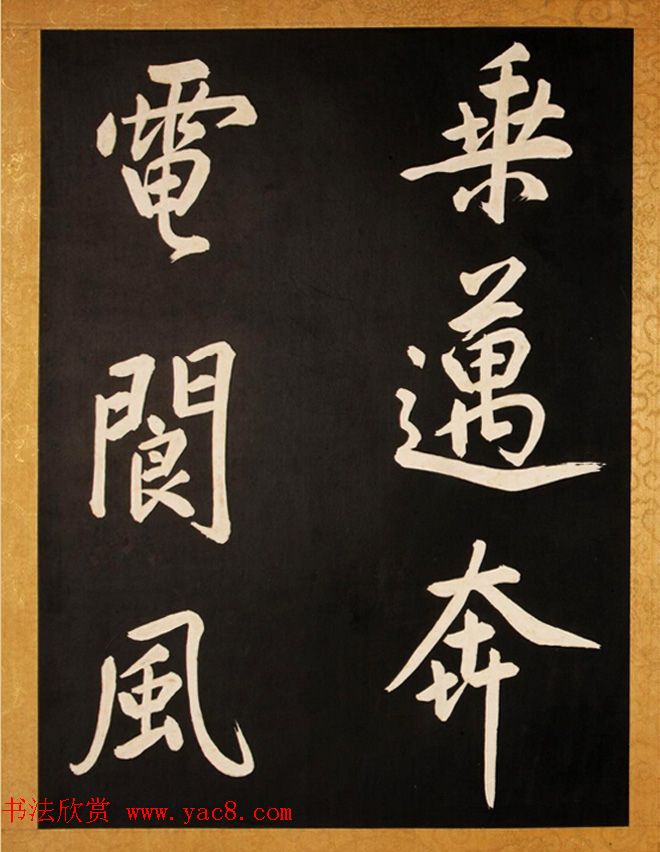 乗邁奔
電閬風
书法欣赏 www.yac8.com